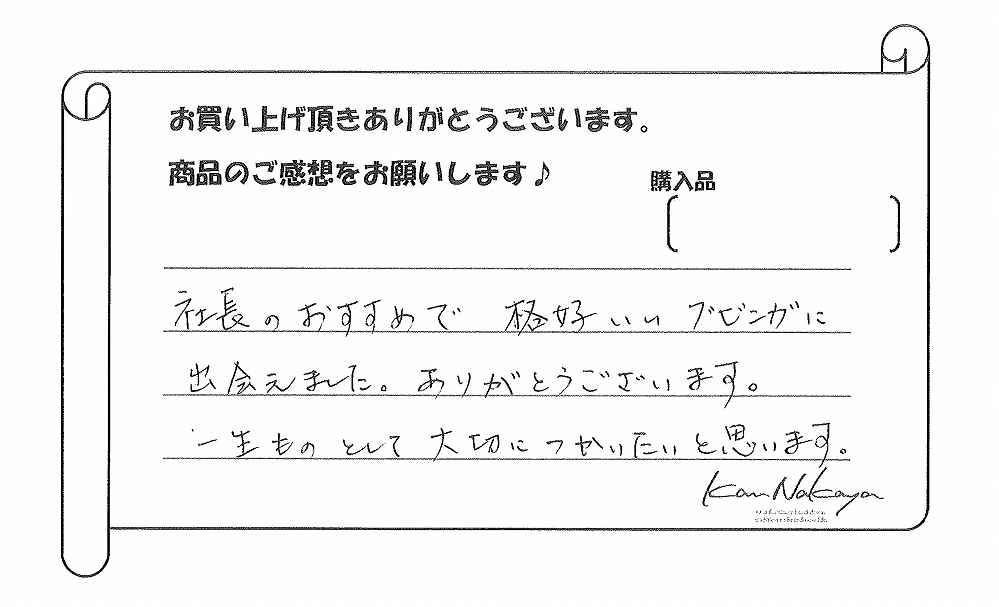 お買い上げ頂きありがとうございます。
商品のご感想をお願いします♪
購入品
社長のおすすめで 格好いい ブビンガに
出会えました。ありがとうございます。
一生ものとして大切につかいたいと思います。
Kan Nakaya